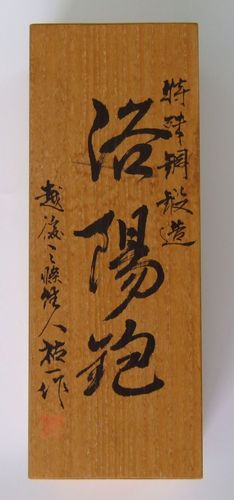 特殊鋼鍛造
洛陽鉋
越後三條住人 一作